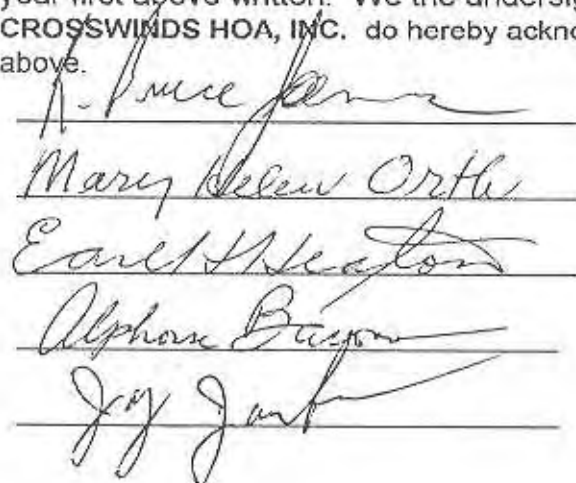 your first above written. We the undersig
CROSSWINDS HOA, INC. do hereby ackno
above.
R. Bruce
Mary Helen Orth
Earl H Heaton
Alphonse
Jay